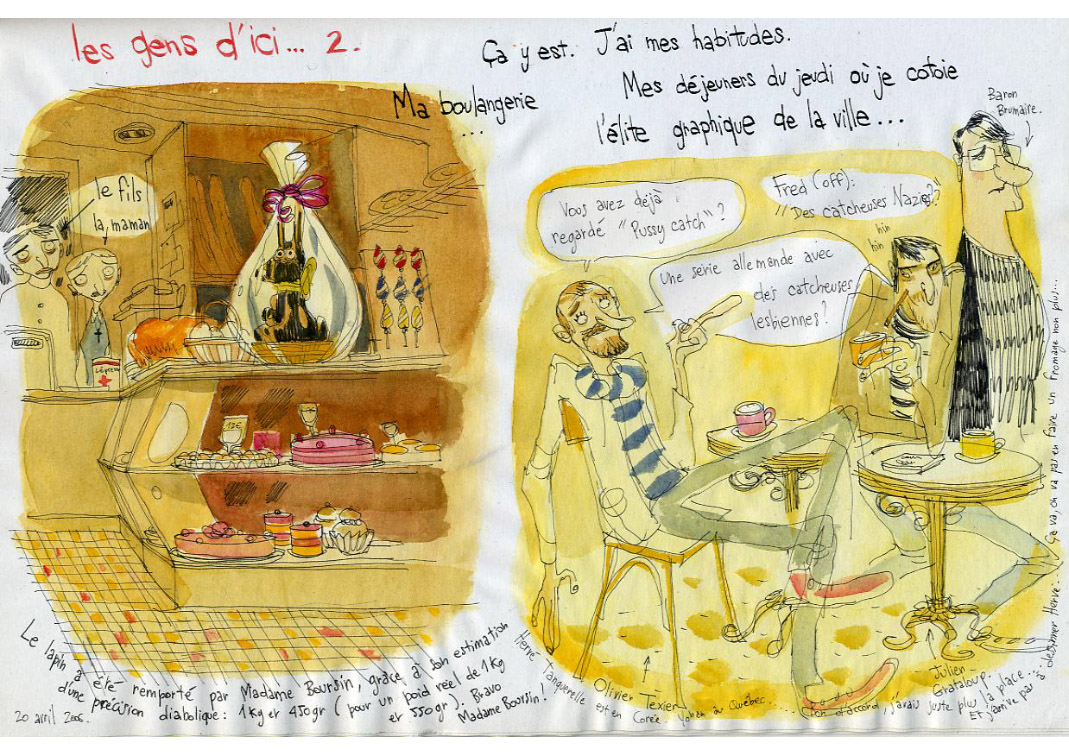 les gens d'ici... 2.
Ça y est. J'ai mes habitudes.
Ma boulangerie
...
Mes déjeuners du jeudi où je cotoie
l'élite graphique de la ville...
Baron
Brumaire.
le fils
la maman
Vous avez déjà
regardé "Pussy catch"?
Fred (off):
"Des catcheuses Nazies?"
hin
hin
une série allemande avec
des catcheuses
lesbiennes?
12€
Le lapin a été remporté par Madame Boursin, grâce à son estimation
d'une précision diabolique: 1kg et 450gr (pour un poid réel de 1kg
et 550gr). Bravo
Madame Boursin!
20 avril 2006.
Olivier Texier
Julien
Grataloup.
Hervé Tanquerelle est en Corée. Yoheh à Québec..... bon d'accord, j'avais juste plus la place... Et j'arrive pas à dessiner Hervé... Ça va, on va pas en faire un fromage non plus...